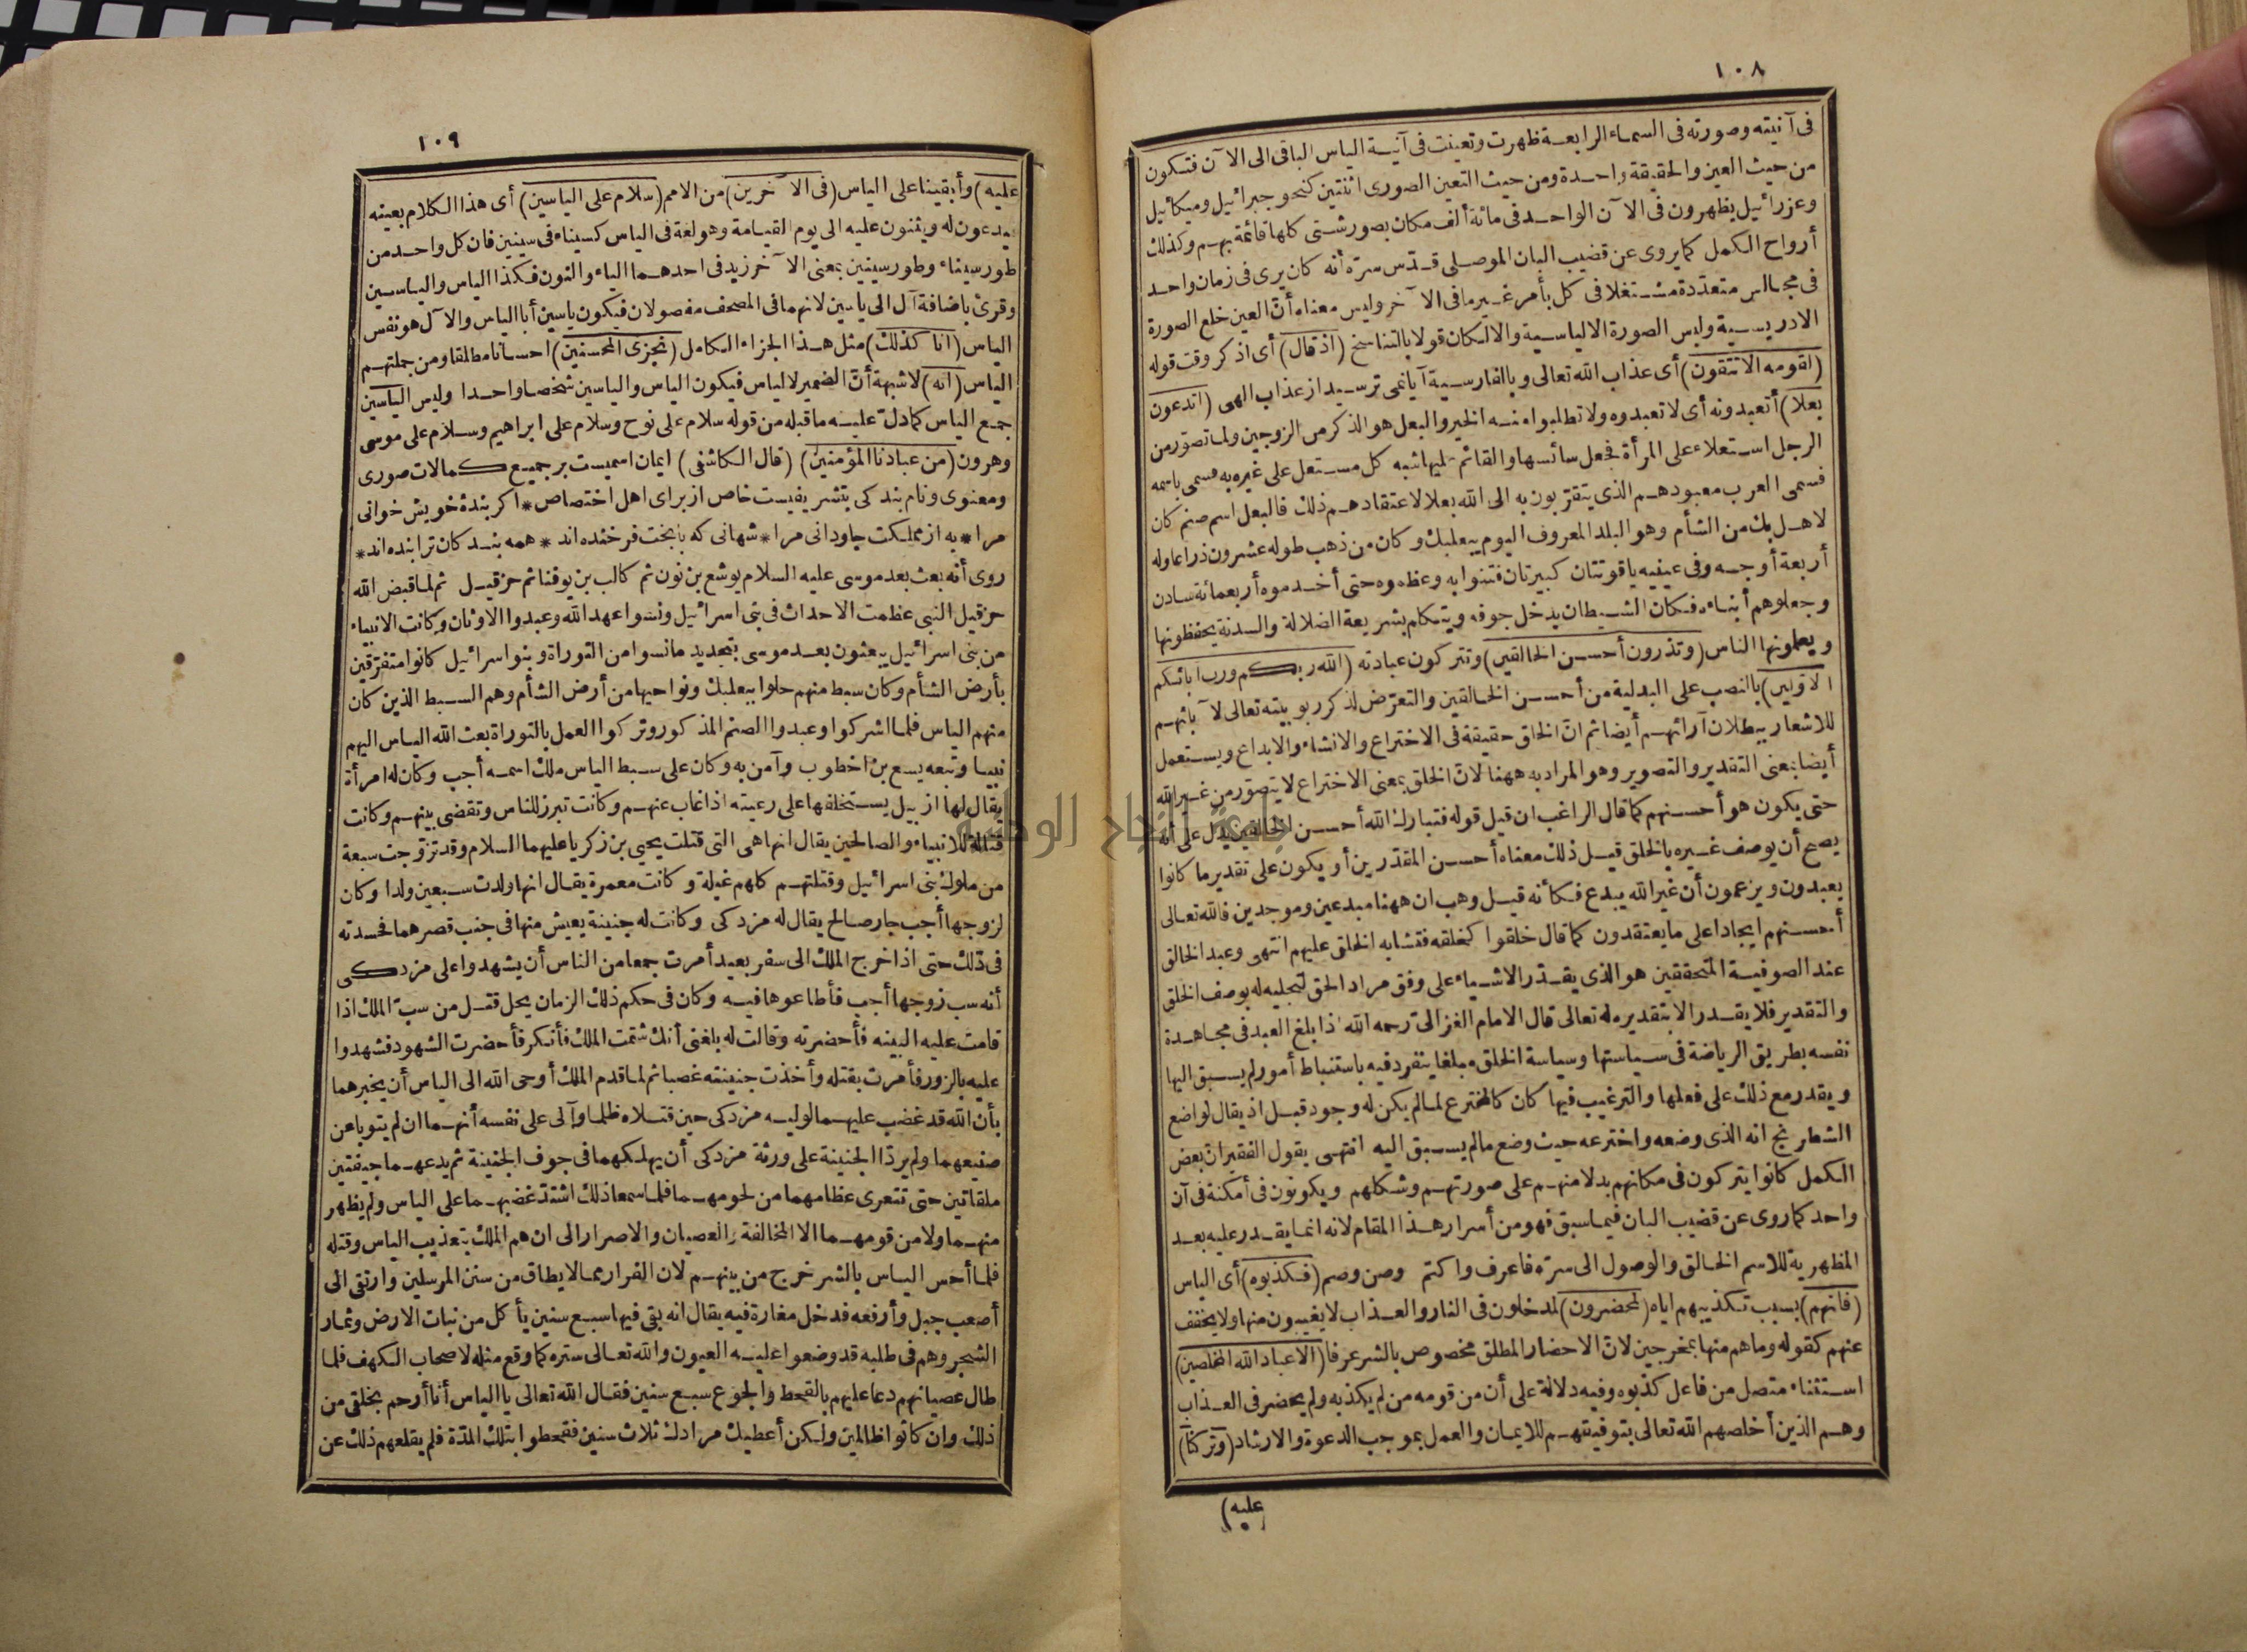 ١٠٨
فى آنيته وصورته فى السماء الرابعة ظهرت وتعينت فى آنية الياس الباقى الى الآن فتكون
من حيث العين والحقيقة واحدة ومن حيث التعين الصورى اثنتين كنحو جبرائيل وميكائيل
وعزرائيل يظهرون فى الآن الواحد فى مائة ألف مكان بصور شتى كلها قائمة بهم وكذلك
أرواح الكمل كما يروى عن قضيب البان الموصلى قدّس سرّه أنه كان يرى فى زمان واحد
فى مجالس متعدّدة مشتغلا فى كل بأمر غير ما فى الآخر وليس معناه أنّ العين خلع الصورة
الادريسية ولبس الصورة الالياسية والا لكان قولا بالتناسخ (اذ قال) أى اذكر وقت قوله
(لقومه الا تتقون) أى عذاب الله تعالى وبالفارسية آيا نمى ترسيد از عذاب الهى (اتدعون
بعلا) أتعبدونه أى لا تعبدوه ولا تطلبوا منه الخير والبعل هو الذكر من الزوجين ولما تصوّر من
الرجل استعلاء على المرأة فجعل سائسها والقائم عليها شبه كل مستعل على غيره به فسمى باسمه
فسمى العرب معبودهم الذى يتقرّبون به الى الله بعلا لاعتقادهم ذلك فالبعل اسم صنم كان
لاهل بك من الشأم وهو البلد المعروف اليوم ببعلبك وكان من ذهب طوله عشرون ذراعا وله
أربعة أوجه وفى عينيه ياقوتتان كبيرتان فتنوا به وعظموه حتى أخدموه أربعمائة سادن
وجعلوهم أنبياء فكان الشيطان يدخل جوفه ويتكلم بشريعة الضلالة والسدنة يحفظونها
ويعلمونها الناس (وتذرون أحسن الخالقين) وتتركون عبادته (الله ربكم ورب ابائكم
الاوّلين) بالنصب على البدلية من أحسن الخالقين والتعرّض لذكر ربوبيته تعالى لآبائهم
للاشعار ببطلان آرائهم أيضا ثم انّ الخلق حقيقة فى الاختراع والانشاء والابداع ويستعمل
أيضا بمعنى التقدير والتصوير وهو المراد به ههنا لانّ الخلق بمعنى الاختراع لا يتصوّر من غير الله
حتى يكون هو أحسنهم كما قال الراغب ان قيل قوله فتبارك الله أحسن الخالقين يدل على أنه
يصح أن يوصف غيره بالخلق قيل ذلك معناه أحسن المقدّرين أو يكون على تقدير ما كانوا
يعبدون ويزعمون أن غير الله يبدع فكأنه قيل وهب ان ههنا مبدعين وموجدين فالله تعالى
أحسنهم ايجادا على ما يعتقدون كما قال خلقوا كخلقه فتشابه الخلق عليهم انتهى وعبد الخالق
عند الصوفية المتحققين هو الذى يقدّر الاشياء على وفق مراد الحق لتجليه له بوصف الخلق
والتقدير فلا يقدر الا بتقديره له تعالى قال الامام الغزالىّ رحمه الله اذا بلغ العبد فى مجاهدة
نفسه بطريق الرياضة فى سياستها وسياسة الخلق مبلغا ينفرد فيه باستنباط أمور لم يسبق اليها
ويقدر مع ذلك على فعلها والترغيب فيها كان كالمخترع لما لم يكن له وجود قبل اذ يقال لواضع
الشطرنج انه الذى وضعه واخترعه حيث وضع ما لم يسبق اليه انتهى يقول الفقير ان بعض
الكمل كانوا يتركون فى مكانهم بدلا منهم على صورتهم وشكلهم ويكونون فى أمكنة فى آن
واحد كما روى عن قضيب البان فيما سبق فهو من أسرار هذا المقام لانه انما يقدر عليه بعد
المظهرية للاسم الخالق والوصول الى سرّه فاعرف واكتم وصن وصم (فكذبوه) أى الياس
(فانهم) بسبب تكذيبهم اياه (لمحضرون) لمدخلون فى النار والعذاب لا يغيبون منها ولا يخفف
عنهم كقوله وما هم منها بمخرجين لانّ الاحضار المطلق مخصوص بالشر عرفا (الا عباد الله المخلصين)
استثناء متصل من فاعل كذبوه وفيه دلالة على أن من قومه من لم يكذبه ولم يحضر فى العذاب
وهم الذين أخلصهم الله تعالى بتوفيقهم للايمان والعمل بموجب الدعوة والارشاد (وتركنا)
عليه)
١٠٩
عليه) وأبقينا على الياس (فى الآخرين) من الامم (سلام على الياسين) أى هذا الكلام بعينه
يدعون له ويثنون عليه الى يوم القيامة وهو لغة فى الياس كسيناء فى سينين فان كل واحد من
طور سيناء وطور سينين بمعنى الآخر زيد فى احدهما الياء والنون فكذا الياس والياسين
وقرئ باضافة آل الى ياسين لانهما فى المصحف مفصولان فيكون ياسين أبا الياس والآل هو نفس
الياس (انا كذلك) مثل هذا الجزاء الكامل (نجزى المحسنين) احسانا مطلقا ومن جملتهم
الياس (انه) لا شبهة أنّ الضمير لالياس فيكون الياس والياسين شخصا واحدا وليس الياسين
جمع الياس كما دلّ عليه ما قبله من قوله سلام على نوح وسلام على ابراهيم وسلام على موسى
وهرون (من عبادنا المؤمنين) (قال الكاشفى) ايمان اسميست بر جميع كمالات صورى
ومعنوى ونام بندكى تشريفيست خاص از براى اهل اختصاص * اكر بندهٔ خويش خوانى
مرا * به از مملكت جاودانى مرا * شهانى كه با بخت فرخنده اند * همه بندكان ترا بنده اند *
روى أنه بعث بعد موسى عليه السلام يوشع بن نون ثم كالب بن يوقنا ثم حزقيل ثم لما قبض الله
حزقيل النبى عظمت الاحداث فى بنى اسرائيل ونسوا عهد الله وعبدوا الاوثان وكانت الانبياء
من بنى اسرائيل يبعثون بعد موسى بتجديد ما نسوا من التوراة وبنو اسرائيل كانوا متفرّقين
بأرض الشأم وكان سبط منهم حلوا ببعلبك ونواحيها من أرض الشأم وهم السبط الذين كان
منهم الياس فلما اشركوا وعبدوا الصنم المذكور وتركوا العمل بالتوراة بعث الله الياس اليهم
نبيا وتبعه يسع بن اخطوب وآمن به وكان على سبط الياس ملك اسمه أجب وكان له امرأة
يقال لها ازبيل يستخلفها على رعيته اذا غاب عنهم وكانت تبرز للناس وتقضى بينهم وكانت
قتالة للانبياء والصالحين يقال انها هى التى قتلت يحيى بن زكريا عليهما السلام وقد تزوّجت سبعة
من ملوك بنى اسرائيل وقتلتهم كلهم غيلة وكانت معمرة يقال انها ولدت سبعين ولدا وكان
لزوجها أجب جار صالح يقال له مزدكى وكانت له جنينة يعيش منها فى جنب قصرهما فحسدته
فى ذلك حتى اذا خرج الملك الى سفر بعيد أمرت جمعا من الناس أن يشهدوا على مزدكى
أنه سب زوجها أجب فأطاعوها فيه وكان فى حكم ذلك الزمان يحل قتل من سبّ الملك اذا
قامت عليه البينه فأحضرته وقالت له بلغنى أنك شتمت الملك فأنكر فأحضرت الشهود فشهدوا
عليه بالزور فأمرت بقتله وأخذت جنينته غصبا ثم لما قدم الملك أوحى الله الى الياس أن يخبرهما
بأن الله قد غضب عليهما لوليه مزدكى حين قتلاه ظلما وآلى على نفسه أنهما ان لم يتوبا عن
صنيعهما ولم يردّا الجنينة على ورثة مزدكى أن يهلكهما فى جوف الجنينة ثم يدعهما جيفتين
ملقاتين حتى تتعرى عظامهما من لحومهما فلما سمعا ذلك اشتدّ غضبهما على الياس ولم يظهر
منهما ولا من قومهما الا المخالفة والعصيان والاصرار الى ان هم الملك بتعذيب الياس وقتله
فلما أحس الياس بالشر خرج من بينهم لان الفرار مما لا يطاق من سنن المرسلين وارتقى الى
أصعب جبل وأرفعه فدخل مغارة فيه يقال انه بقى فيها سبع سنين يأكل من نبات الارض وثمار
الشجر وهم فى طلبه قد وضعوا عليه العيون والله تعالى ستره كما وقع مثله لاصحاب الكهف فلما
طال عصيانهم دعا عليهم بالقحط والجوع سبع سنين فقال الله تعالى يا الياس أنا أرحم بخلقى من
ذلك وان كانوا ظالمين ولكن أعطيك مرادك ثلاث سنين فقحطوا بتلك المدّة فلم يقلعهم ذلك عن
جامعة النجاح الوطنية